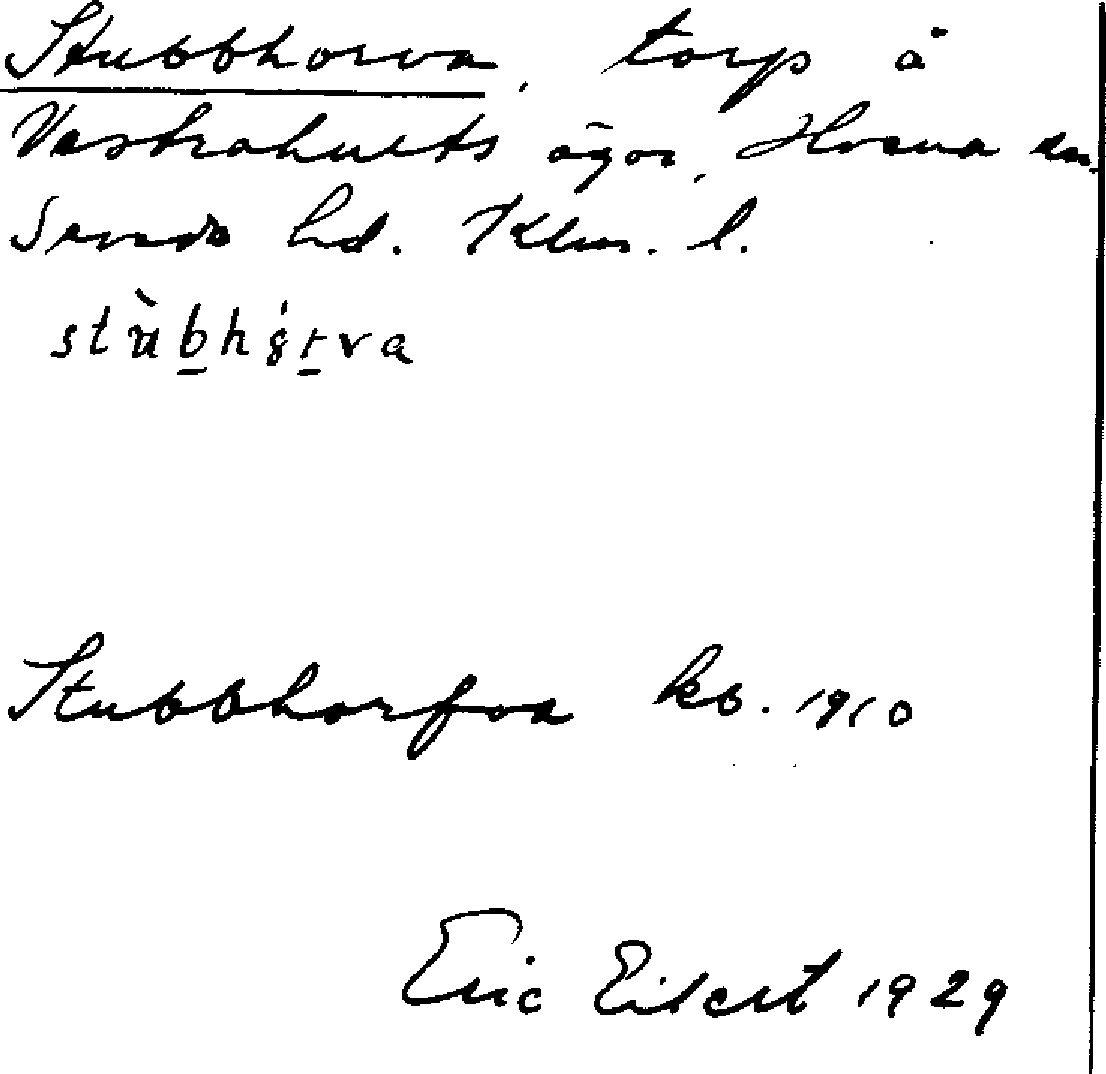 Stubbhorva, torp å
Västrahults ägor, Hvena sn.
Sevede hd. Klm. l.
stùbhǫ́rva
Stubbhorfva kb. 1910
Eric Eilert 1929